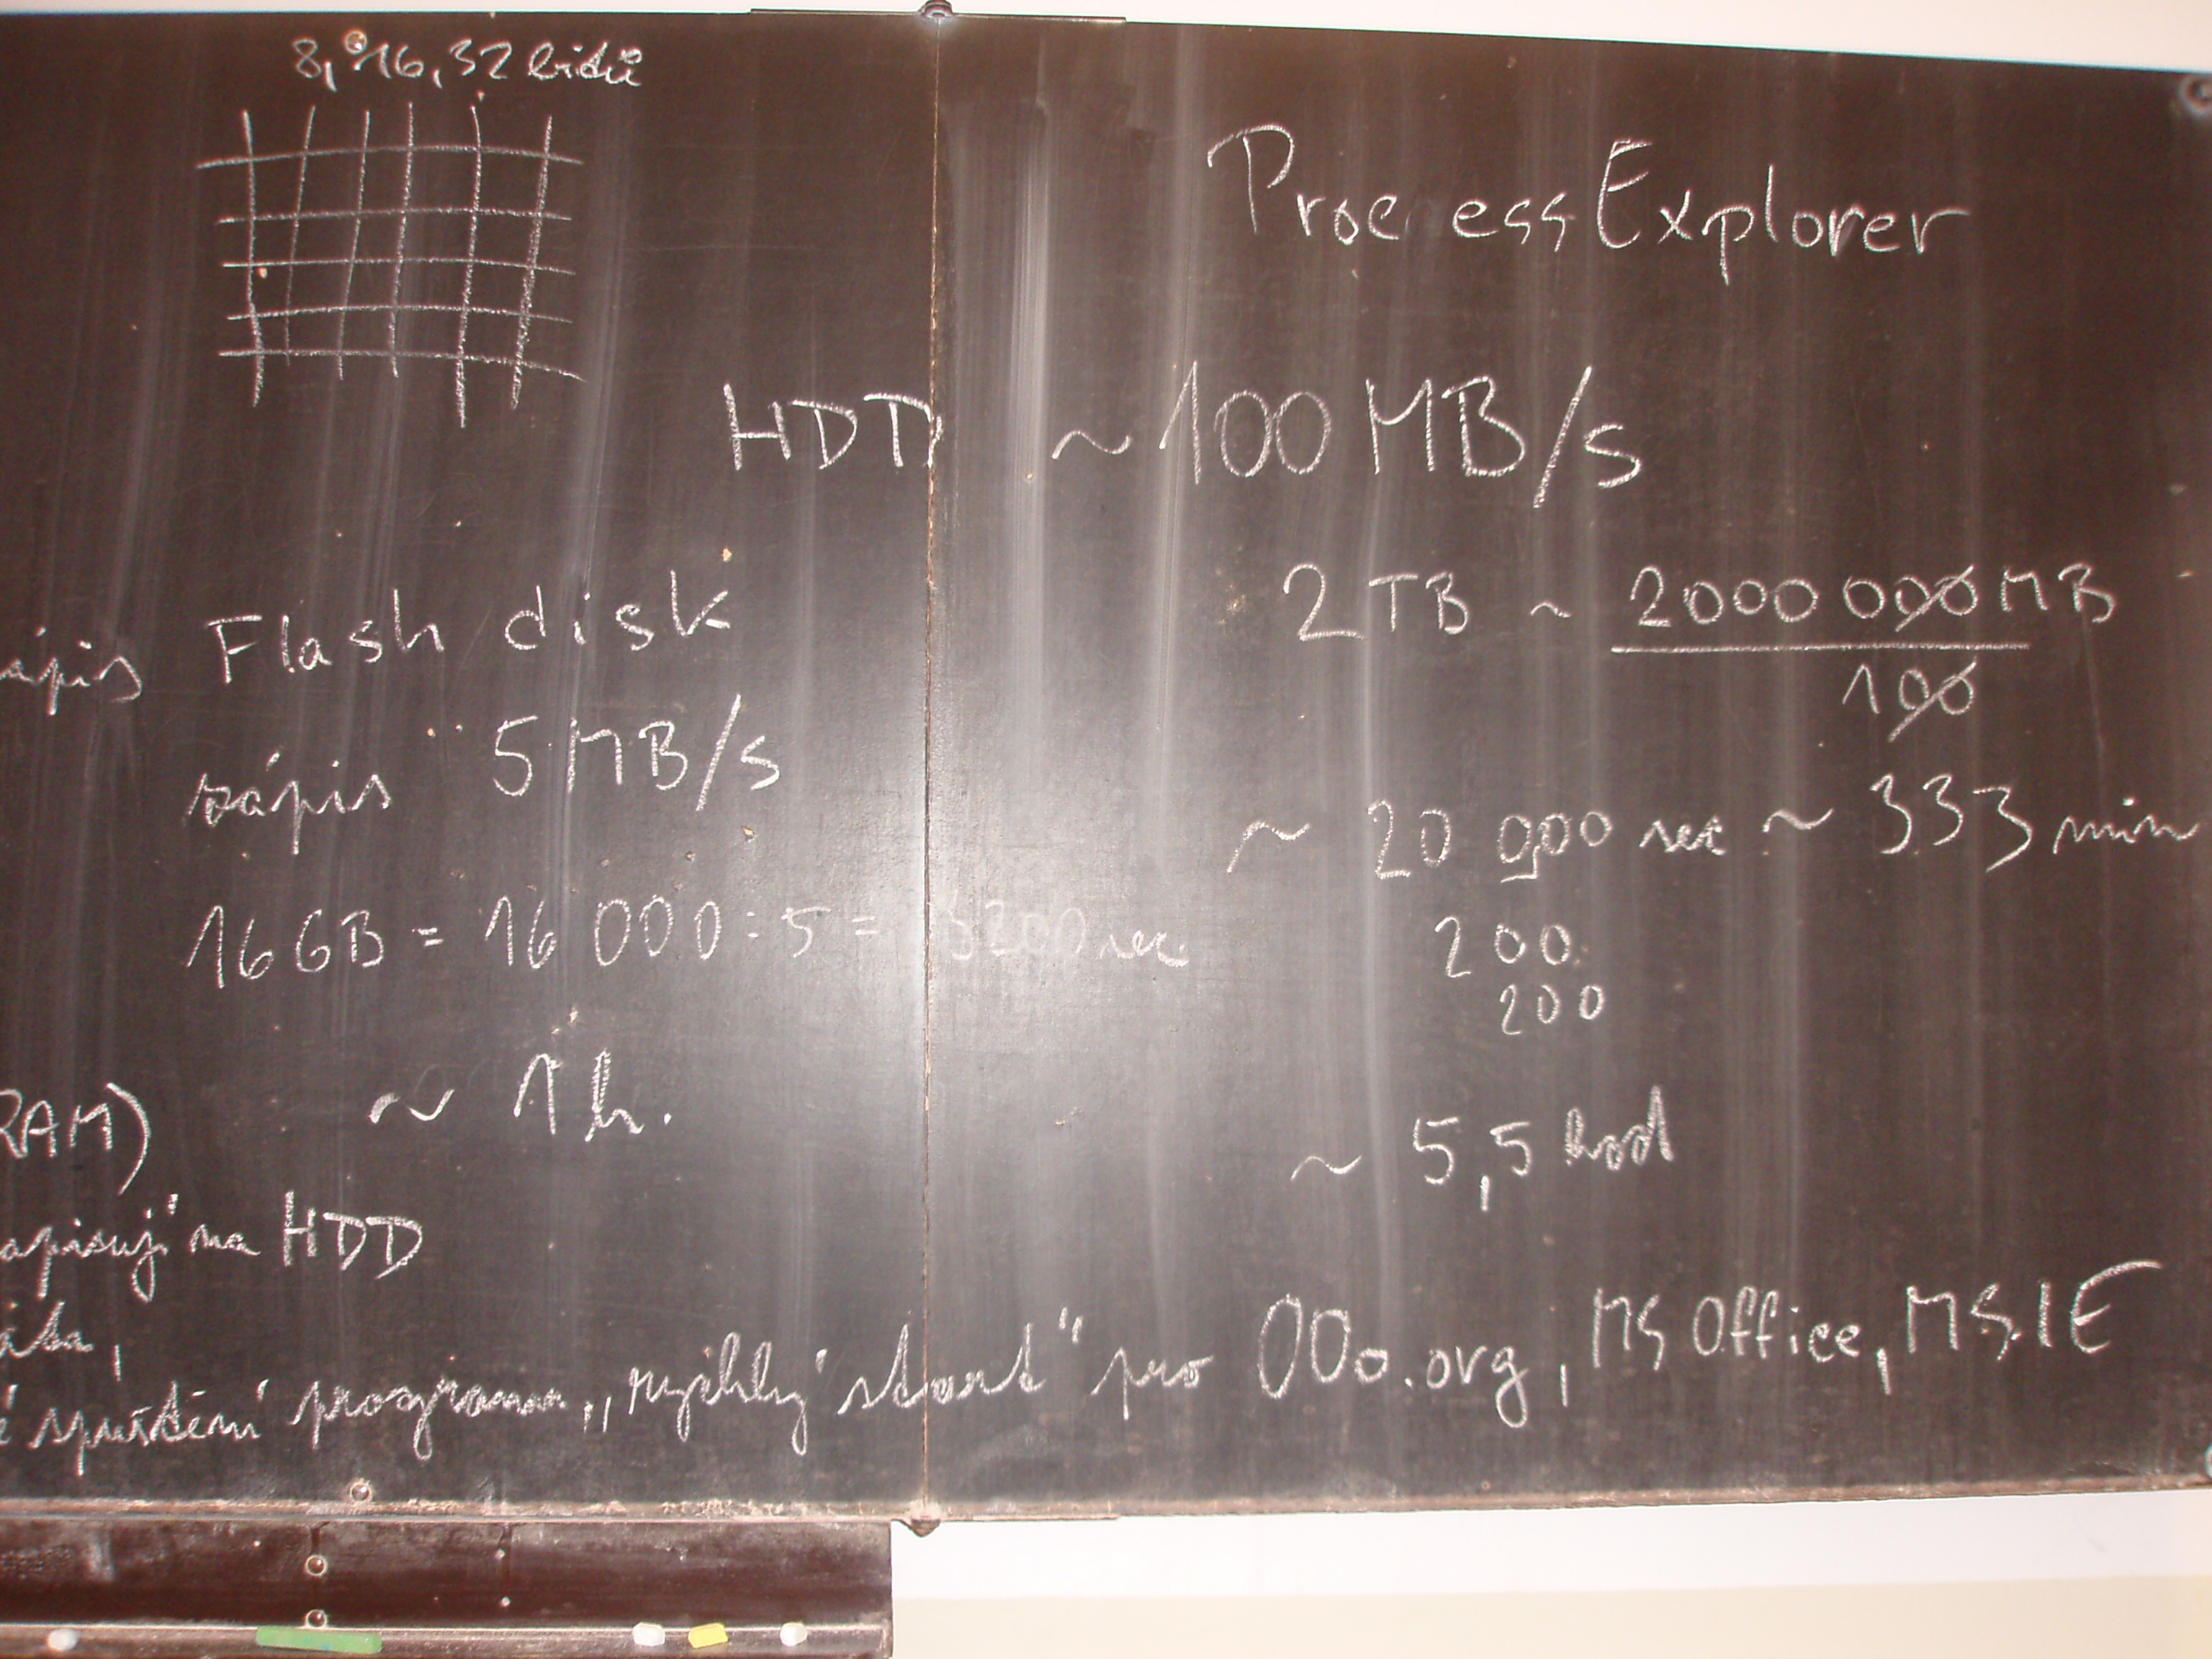 8, 16, 32 bitů
Process Explorer
HDD ~ 100 MB/s
Flash disk
zápis 5 MB/s
16 GB = 16 000 : 5 = 3200 sec.
~ 1 h.
2 TB ~ 2000 000 MB
100
~ 20 000 sec ~ 333 min
200
200
~ 5,5 hod
RAM)
apisují na HDD
é spuštění programu „rychlý start" pro OOo.org, MS Office, MS IE